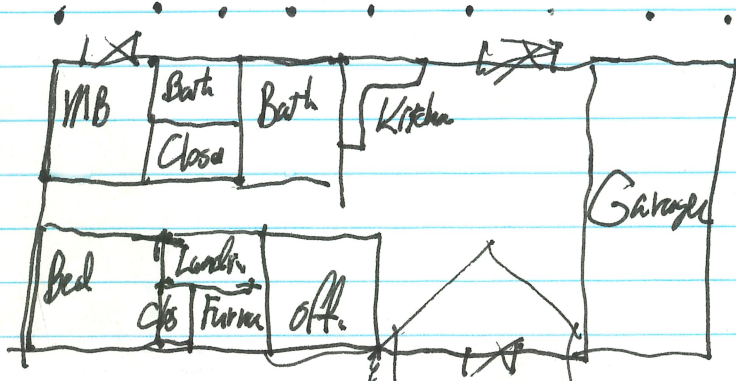 MB
Bath
Closet
Bath
Kitchen
Garage
Bed
Clos
Laundr
Furna
off.